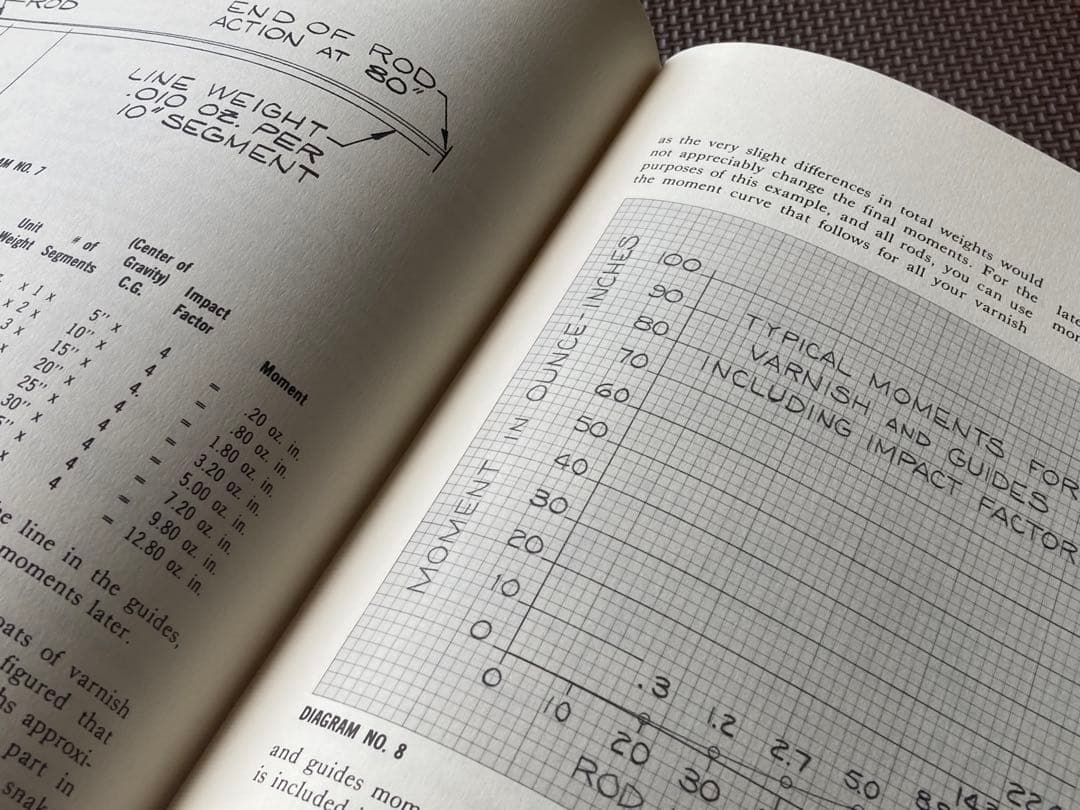 ROD
END OF ROD
ACTION AT 80"
LINE WEIGHT
.010 OZ. PER
10" SEGMENT
NO. 7
Unit
Weight
# of
Segments
(Center of
Gravity)
C.G.
Impact
Factor
Moment
x 1 x 5" x 4 = .20 oz. in.
x 2 x 10" x 4 = .80 oz. in.
3 x 15" x 4. = 1.80 oz. in.
x 20" x 4 = 3.20 oz. in.
25" x 4 = 5.00 oz. in.
30" x 4 = 7.20 oz. in.
5" x 4 = 9.80 oz. in.
x 4 = 12.80 oz. in.
line in the guides,
moments later.
of varnish
figured that
approxi-
part in
as the very slight differences in total weights would
not appreciably change the final moments. For the
purposes of this example, and all rods, you can use
the moment curve that follows for all your varnish
MOMENT IN OUNCE-INCHES
100
90
80
70
60
50
40
30
20
10
0
TYPICAL MOMENTS FOR
VARNISH AND GUIDES
INCLUDING IMPACT FACTOR
.3 1.2 2.7 5.0
0 10 20 30
ROD
DIAGRAM NO. 8
and guides
is included